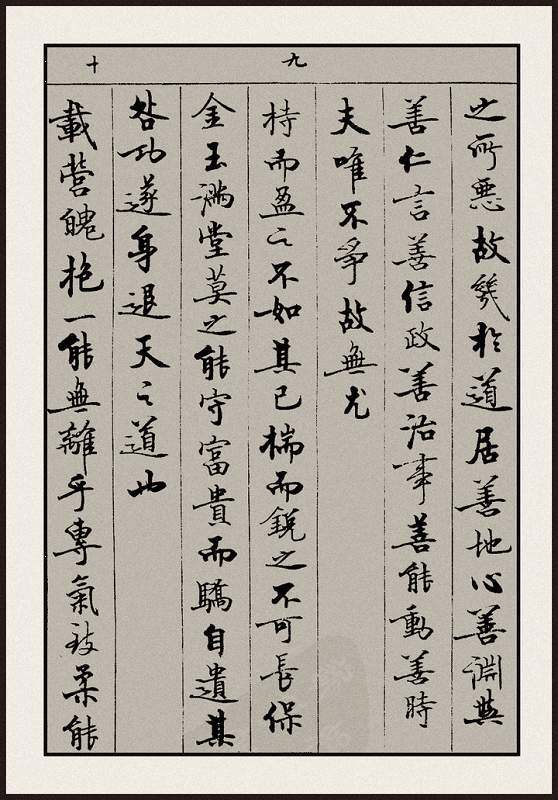 之所惡故幾於道居善地心善淵與
善仁言善信政善治事善能動善時
夫唯不爭故無尤
九
持而盈之不如其已揣而銳之不可長保
金玉滿堂莫之能守富貴而驕自遺其
咎功遂身退天之道也
十
載營魄抱一能無離乎專氣致柔能